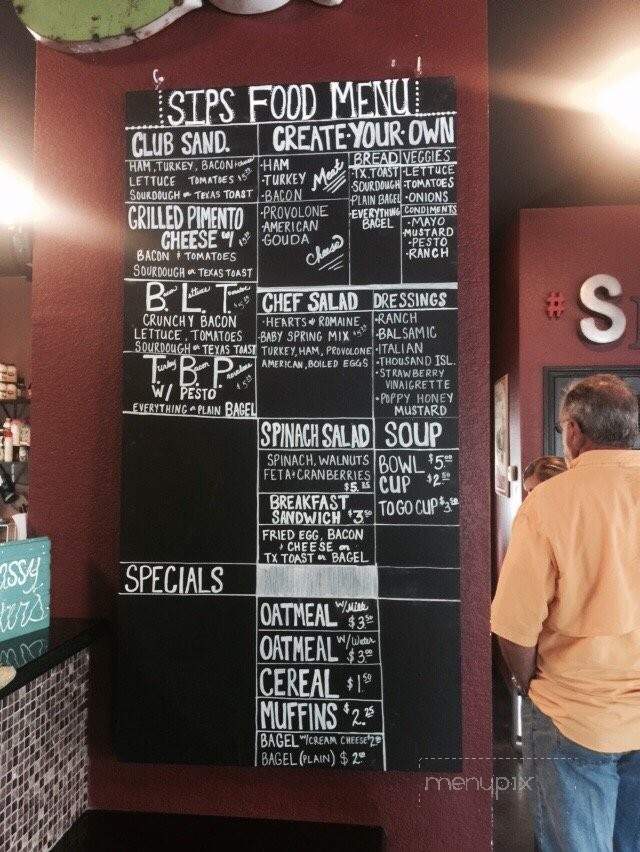 SIPS FOOD MENU
CLUB SAND.
HAM, TURKEY, BACON
LETTUCE TOMATOES
SOURDOUGH OR TEXAS TOAST
GRILLED PIMENTO
CHEESE W/
BACON & TOMATOES
SOURDOUGH OR TEXAS TOAST
B. L. T.
Bacon Lettuce Tomatoes
CRUNCHY BACON
LETTUCE, TOMATOES
SOURDOUGH OR TEXAS TOAST
T. B. P.
Turkey Bacon Provolone
W/ PESTO
EVERYTHING OR PLAIN BAGEL
CREATE·YOUR·OWN
·HAM
·TURKEY
·BACON
Meat
·PROVOLONE
·AMERICAN
·GOUDA
Cheese
BREAD
·TX.TOAST
·SOURDOUGH
·PLAIN BAGEL
·EVERYTHING
BAGEL
VEGGIES
·LETTUCE
·TOMATOES
·ONIONS
CONDIMENTS
·MAYO
·MUSTARD
·PESTO
·RANCH
CHEF SALAD
·HEARTS OF ROMAINE
·BABY SPRING MIX
TURKEY, HAM, PROVOLONE
AMERICAN, BOILED EGGS
DRESSINGS
·RANCH
·BALSAMIC
·ITALIAN
·THOUSAND ISL.
·STRAWBERRY
VINAIGRETTE
·POPPY HONEY
MUSTARD
SPINACH SALAD
SPINACH, WALNUTS
FETA & CRANBERRIES
$5.25
SOUP
BOWL $5.00
CUP $2.50
TO GO CUP $3.50
BREAKFAST
SANDWICH $3.50
FRIED EGG, BACON
& CHEESE on
TX TOAST OR BAGEL
SPECIALS
OATMEAL W/Milk $3.50
OATMEAL W/Water $3.00
CEREAL $1.50
MUFFINS $2.25
BAGEL W/CREAM CHEESE $2.50
BAGEL (PLAIN) $2.00
# S
menupix